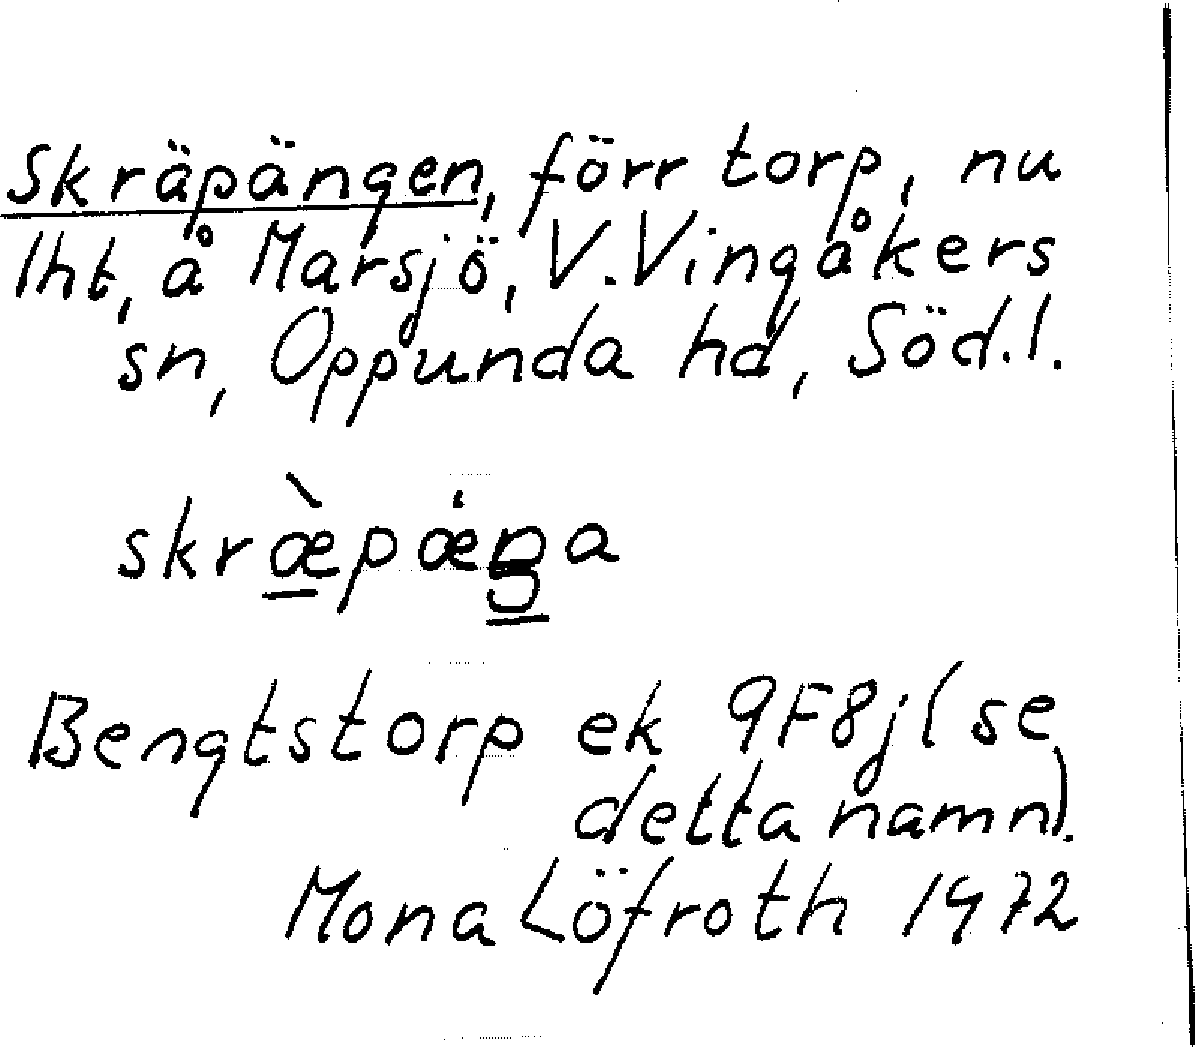 Skräpängen, förr torp, nu
lht, å Marsjö, V. Vingåkers
sn, Oppunda hd, Söd.l.
skræ̀pæ̇ŋa
Bengtstorp ek 9F8j (se
detta namn).
Mona Löfroth 1972